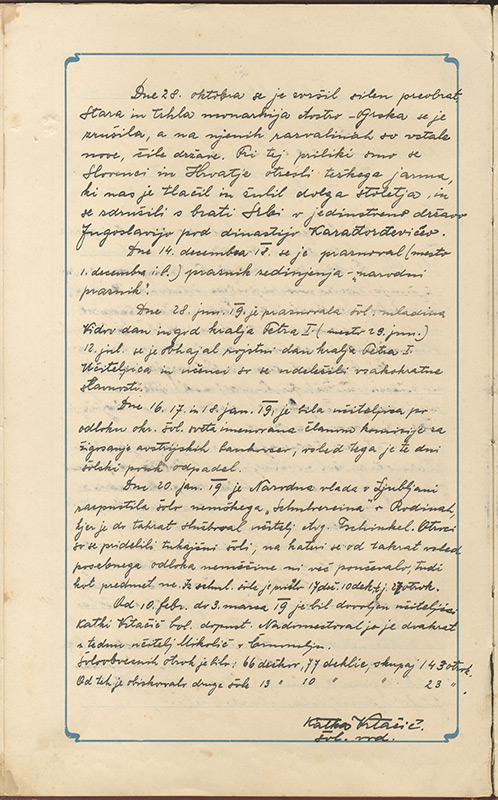 Dne 28. oktobra se je izvršil silen preobrat.
Stara in trhla monarhija Avstro-Ogrska se je
zrušila, a na njenih razvalinah so vstale
nove, čile države. Pri tej priliki smo se
Slovenci in Hrvatje otresli težkega jarma,
ki nas je tlačil in žulil dolga stoletja, in
se združili s brati Srbi v jedinstveno državo
Jugoslavijo pod dinastijo Karađorđevićev.
Dne 14. decembra 18. se je praznoval (mesto
1. decembra i. l.) praznik zedinjenja - „narodni
praznik".
Dne 28. jun. 19. je praznovala šol. mladina
Vidov dan in god kralja Petra I. (mesto 29. jun.)
12. jul. se je obhajal rojstni dan kralja Petra I.
Učiteljica in učenci so se udeležili vsakokratne
slavnosti.
Dne 16. 17. in 18. jan. 19. je bila učiteljica po
odloku okr. šol. sveta imenovana članom komisije za
žigosanje avstrijskih bankovcev, vsled tega je te dni
šolski pouk odpadel.
Dne 20. jan. 19 je Narodna vlada v Ljubljani
razpustila šolo nemškega „Schulvereina v Rodinah,
kjer je do takrat služboval učitelj Avg. Tschinkel. Otroci
so se pridelili tukajšni šoli, na kateri se od takrat vsled
posebnega odloka nemščine ni več poučevalo, tudi
kot predmet ne. Iz schul. šole je prišlo 17 deč. 10 dek. t. j. 27 otrok.
Od 10. febr. do 3. marca 19 je bil dovoljen učiteljici
Katki Vrtačić bol. dopust. Nadomestoval jo je dvakrat
v tednu učitelj Mikolič v Črnomlju.
Šoloobveznih otrok je bilo: 66 dečkov, 77 deklic, skupaj 143 otrok.
Od teh je obiskovalo druge šole 13 " 10 " " 23 " .
Katka Vrtačič.
šol. vod.